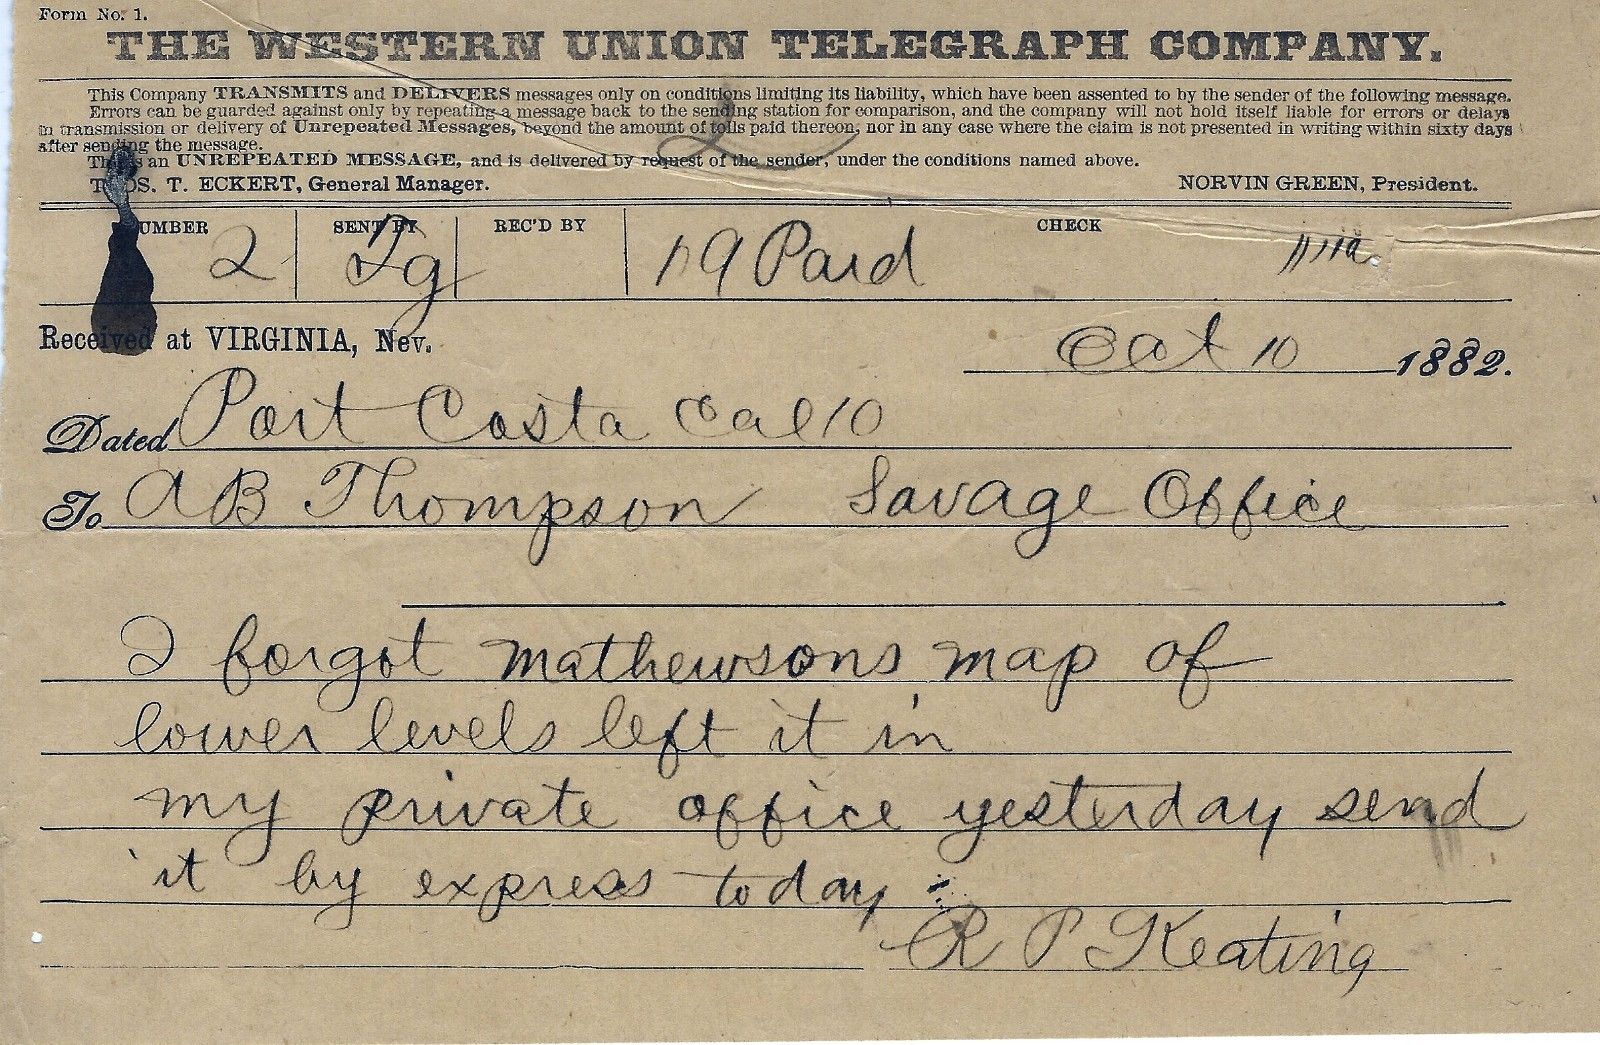 Form No. 1.
THE WESTERN UNION TELEGRAPH COMPANY.
This Company TRANSMITS and DELIVERS messages only on conditions limiting its liability, which have been assented to by the sender of the following message.
Errors can be guarded against only by repeating a message back to the sending station for comparison, and the company will not hold itself liable for errors or delays
in transmission or delivery of Unrepeated Messages, beyond the amount of tolls paid thereon, nor in any case where the claim is not presented in writing within sixty days
after sending the message.
This is an UNREPEATED MESSAGE, and is delivered by request of the sender, under the conditions named above.
THOS. T. ECKERT, General Manager. NORVIN GREEN, President.
NUMBER SENT BY REC'D BY CHECK
2 19 Paid
Received at VIRGINIA, Nev.
Oct 10 1882.
Dated Port Costa Cal 10
To A B Thompson Savage Office
I forgot mathewsons map of
lower levels left it in
my private office yesterday send
it by express today
R P Keating